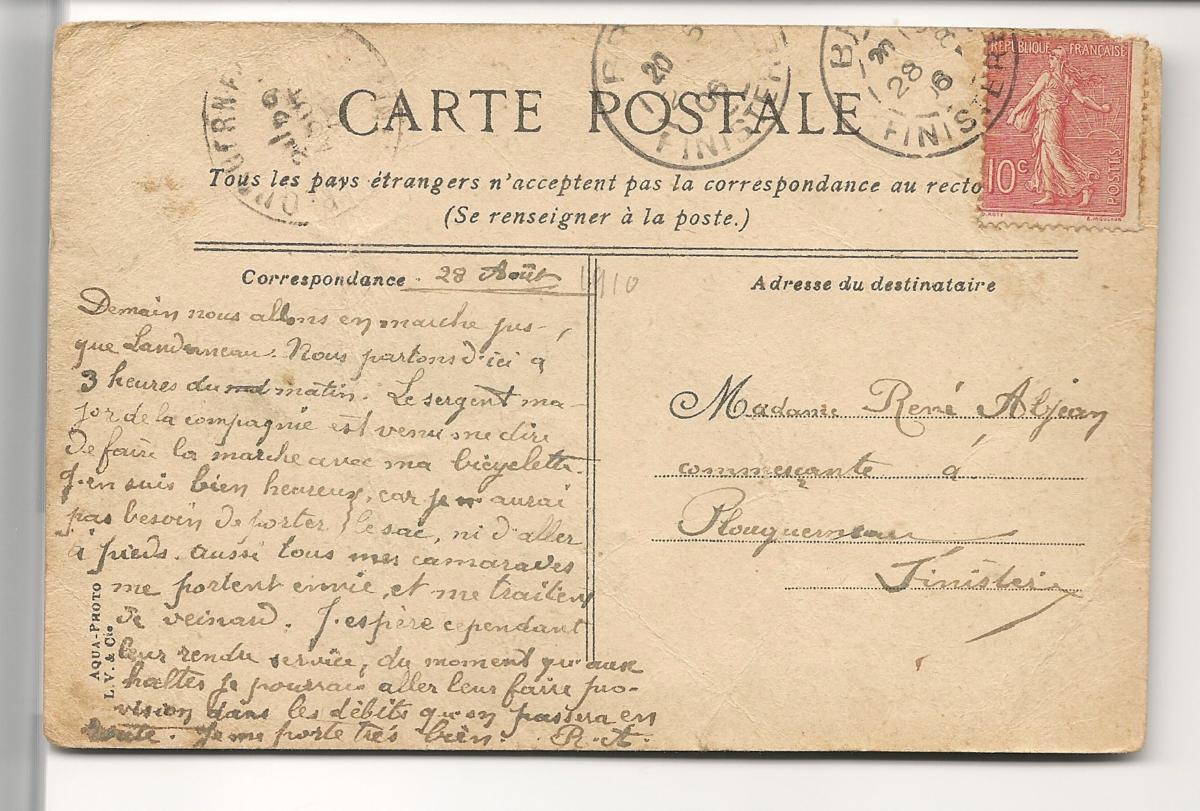 CARTE POSTALE
Tous les pays étrangers n'acceptent pas la correspondance au recto
(Se renseigner à la poste.)
FINISTERE
20
06
FINISTERE
28
RÉPUBLIQUE FRANÇAISE
10c
POSTES
Correspondance 28 Août 1910
Demain nous allons en marche jus-
que Landerneau. Nous partons d'ici à
3 heures du matin. Le sergent ma-
jor de la compagnie est venu me dire
de faire la marche avec ma bicyclette.
J'en suis bien heureux, car je n'aurai
pas besoin de porter le sac, ni d'aller
à pieds. aussi tous mes camarades
me portent envie, et me traitent
de veinard. J'espère cependant
leur rendre service, du moment qu'aux
haltes je pourrai aller leur faire pro-
vision dans les débits qu'on passera en
route. Je me porte très bien. R. A.
AQUA-PHOTO
L. V. & Cie
Adresse du destinataire
Madame René Abjean
commerçante à
Plouguerneau
Finistère